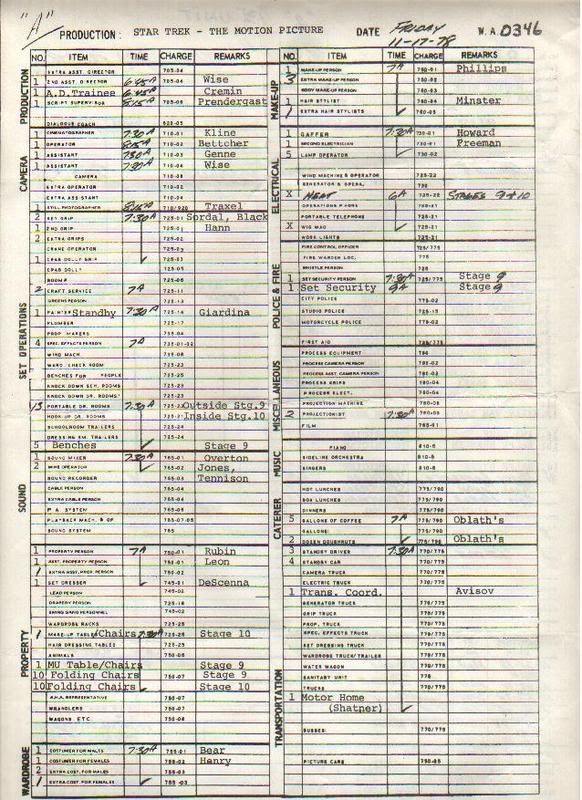 "A"
PRODUCTION: STAR TREK - THE MOTION PICTURE DATE FRIDAY 11-17-78 W.A. 0346
NO. ITEM TIME CHARGE REMARKS
PRODUCTION
EXTRA ASST. DIRECTOR 705-04
1 2ND ASST. DIRECTOR 6:45A 705-04 Wise
1 A.D. Trainee 6:45A Cremin
1 SCRIPT SUPERVISOR 8:15A 705-06 Prendergast
DIALOGUE COACH 625-05
CAMERA
1 CINEMATOGRAPHER 7:30A 710-01 Kline
1 OPERATOR 8:15A 710-02 Bettcher
1 ASSISTANT 710-03 Genne
1 ASSISTANT 7:30A 710-04 Wise
CAMERA 710-08
EXTRA OPERATOR 710-02
EXTRA ASSISTANT 710-04
1 STILL PHOTOGRAPHER 8:15A 710/920 Traxel
SET OPERATIONS
2 KEY GRIP 7:30A 725-01 Sordal, Black
1 2ND GRIP 725-01 Hann
2 EXTRA GRIPS 725-02
CRANE OPERATOR 725-03
1 CRAB DOLLY GRIP 725-03
CRAB DOLLY 725-05
2 CRAFT SERVICE 7A 725-11
GREENS PERSON 725-13
1 PAINTER Standby 7:30A 725-16 Giardina
PLUMBER 725-17
PROP. MAKERS 725-04
4 SPEC. EFFECTS PERSON 7A 735-01-02
WIND MACH. 735-08
WARD. CHECK ROOM 725-23
BENCHES FOR PEOPLE 725-25
KNOCK DOWN SCH. ROOMS 725-23
KNOCK DOWN DR. ROOMS 725-23
PORTABLE DR. ROOMS 7:30A 725-23 Outside Stg.9
HOOK UP DR. ROOMS Inside Stg.10
SCHOOLROOM TRAILERS 725-24
DRESSING RM. TRAILERS 725-24
5 Benches Stage 9
SOUND
1 SOUND MIXER 7:30A 765-01 Overton
2 MIKE OPERATOR 765-02 Jones,
SOUND RECORDER 765-03 Tennison
CABLE PERSON 765-04
EXTRA CABLE PERSON 765-04
P.A. SYSTEM 765-05
PLAYBACK MACH. & OP. 765-07-05
SOUND SYSTEM 765
PROPERTY
1 PROPERTY PERSON 7A 750-01 Rubin
1 ASST. PROPERTY PERSON 750-01 Leon
1 EXTRA ASST. PROP. PERSON 750-02
1 SET DRESSER 745-01 DeScenna
LEAD PERSON 745-02
DRAPERY PERSON 725-18
SWING GANG PERSONNEL 745-02
WARDROBE RACKS 725-25
1 MAKE-UP TABLE/Chairs 7:30A 725-25 Stage 10
HAIR DRESSING TABLES 725-25
ANIMALS 750-06
1 MU Table/Chairs Stage 9
10 Folding Chairs 750-07 Stage 9
10 Folding Chairs Stage 10
A.H.A. REPRESENTATIVE 750-07
WRANGLERS 750-07
WAGONS ETC. 750-08
WARDROBE
1 COSTUMER FOR MALES 7:30A 755-01 Bear
1 COSTUMER FOR FEMALES 755-02 Henry
2 EXTRA COST. FOR MALES 755-03
1 EXTRA COST. FOR FEMALES 755-03
NO. ITEM TIME CHARGE REMARKS
MAKE-UP
1 MAKE-UP PERSON 7A 760-01 Phillips
3 EXTRA MAKE-UP PERSON 760-02
BODY MAKE-UP PERSON 760-03
1 HAIR STYLIST 760-04 Minster
1 EXTRA HAIR STYLISTS 760-05
ELECTRICAL
1 GAFFER 7:30A 730-01 Howard
1 SECOND ELECTRICIAN 730-01 Freeman
5 LAMP OPERATOR 730-02
WIND MACHINE & OPERATOR 725-22
GENERATOR & OPERA. 730
X HEAT 6A 725-22 STAGES 9+10
OPERATIONS PHONE 725-21
PORTABLE TELEPHONE 725-21
X WIG WAG 725-21
WORK LIGHTS 725-21
POLICE & FIRE
FIRE CONTROL OFFICER 725/775
FIRE WARDEN LOC. 775
WHISTLE PERSON 725
1 SET SECURITY PERSON 7:30A 725/775 Stage 9
1 Set Security 9A Stage 9
CITY POLICE 775-02
STUDIO POLICE 725-15
MOTORCYCLE POLICE 775-02
FIRST AID 725/775
MISCELLANEOUS
PROCESS EQUIPMENT 780
PROCESS CAMERA PERSON 780-02
PROCESS ASST. CAMERA PERSON 780-02
PROCESS GRIPS 780-04
PROCESS ELECT. 780-04
PROJECTION MACHINE 780-05
2 PROJECTIONIST 7:30A 780-05
FILM 785-01
MUSIC
PIANO 810-5
SIDELINE ORCHESTRA 810-5
SINGERS 810-5
CATERER
HOT LUNCHES 775/790
BOX LUNCHES 775/790
DINNERS 775/790
5 GALLONS OF COFFEE 7A 775/790 Oblath's
GALLONS 775/790
2 DOZEN DOUGHNUTS 775/790 Oblath's
TRANSPORTATION
3 STANDBY DRIVER 7:30A 770/775
4 STANDBY CAR 770/775
CAMERA TRUCK 770/775
ELECTRIC TRUCK 770/775
1 Trans. Coord. Avisov
GENERATOR TRUCK 770/775
GRIP TRUCK 770/775
PROP. TRUCK 770/775
SPEC. EFFECTS TRUCK 770/775
SET DRESSING TRUCK 770/775
WARDROBE TRUCK/TRAILER 770/775
WATER WAGON 770/775
SANITARY UNIT 775
TRUCKS 770/775
1 Motor Home
(Shatner)
BUSSES 770/775
PICTURE CARS